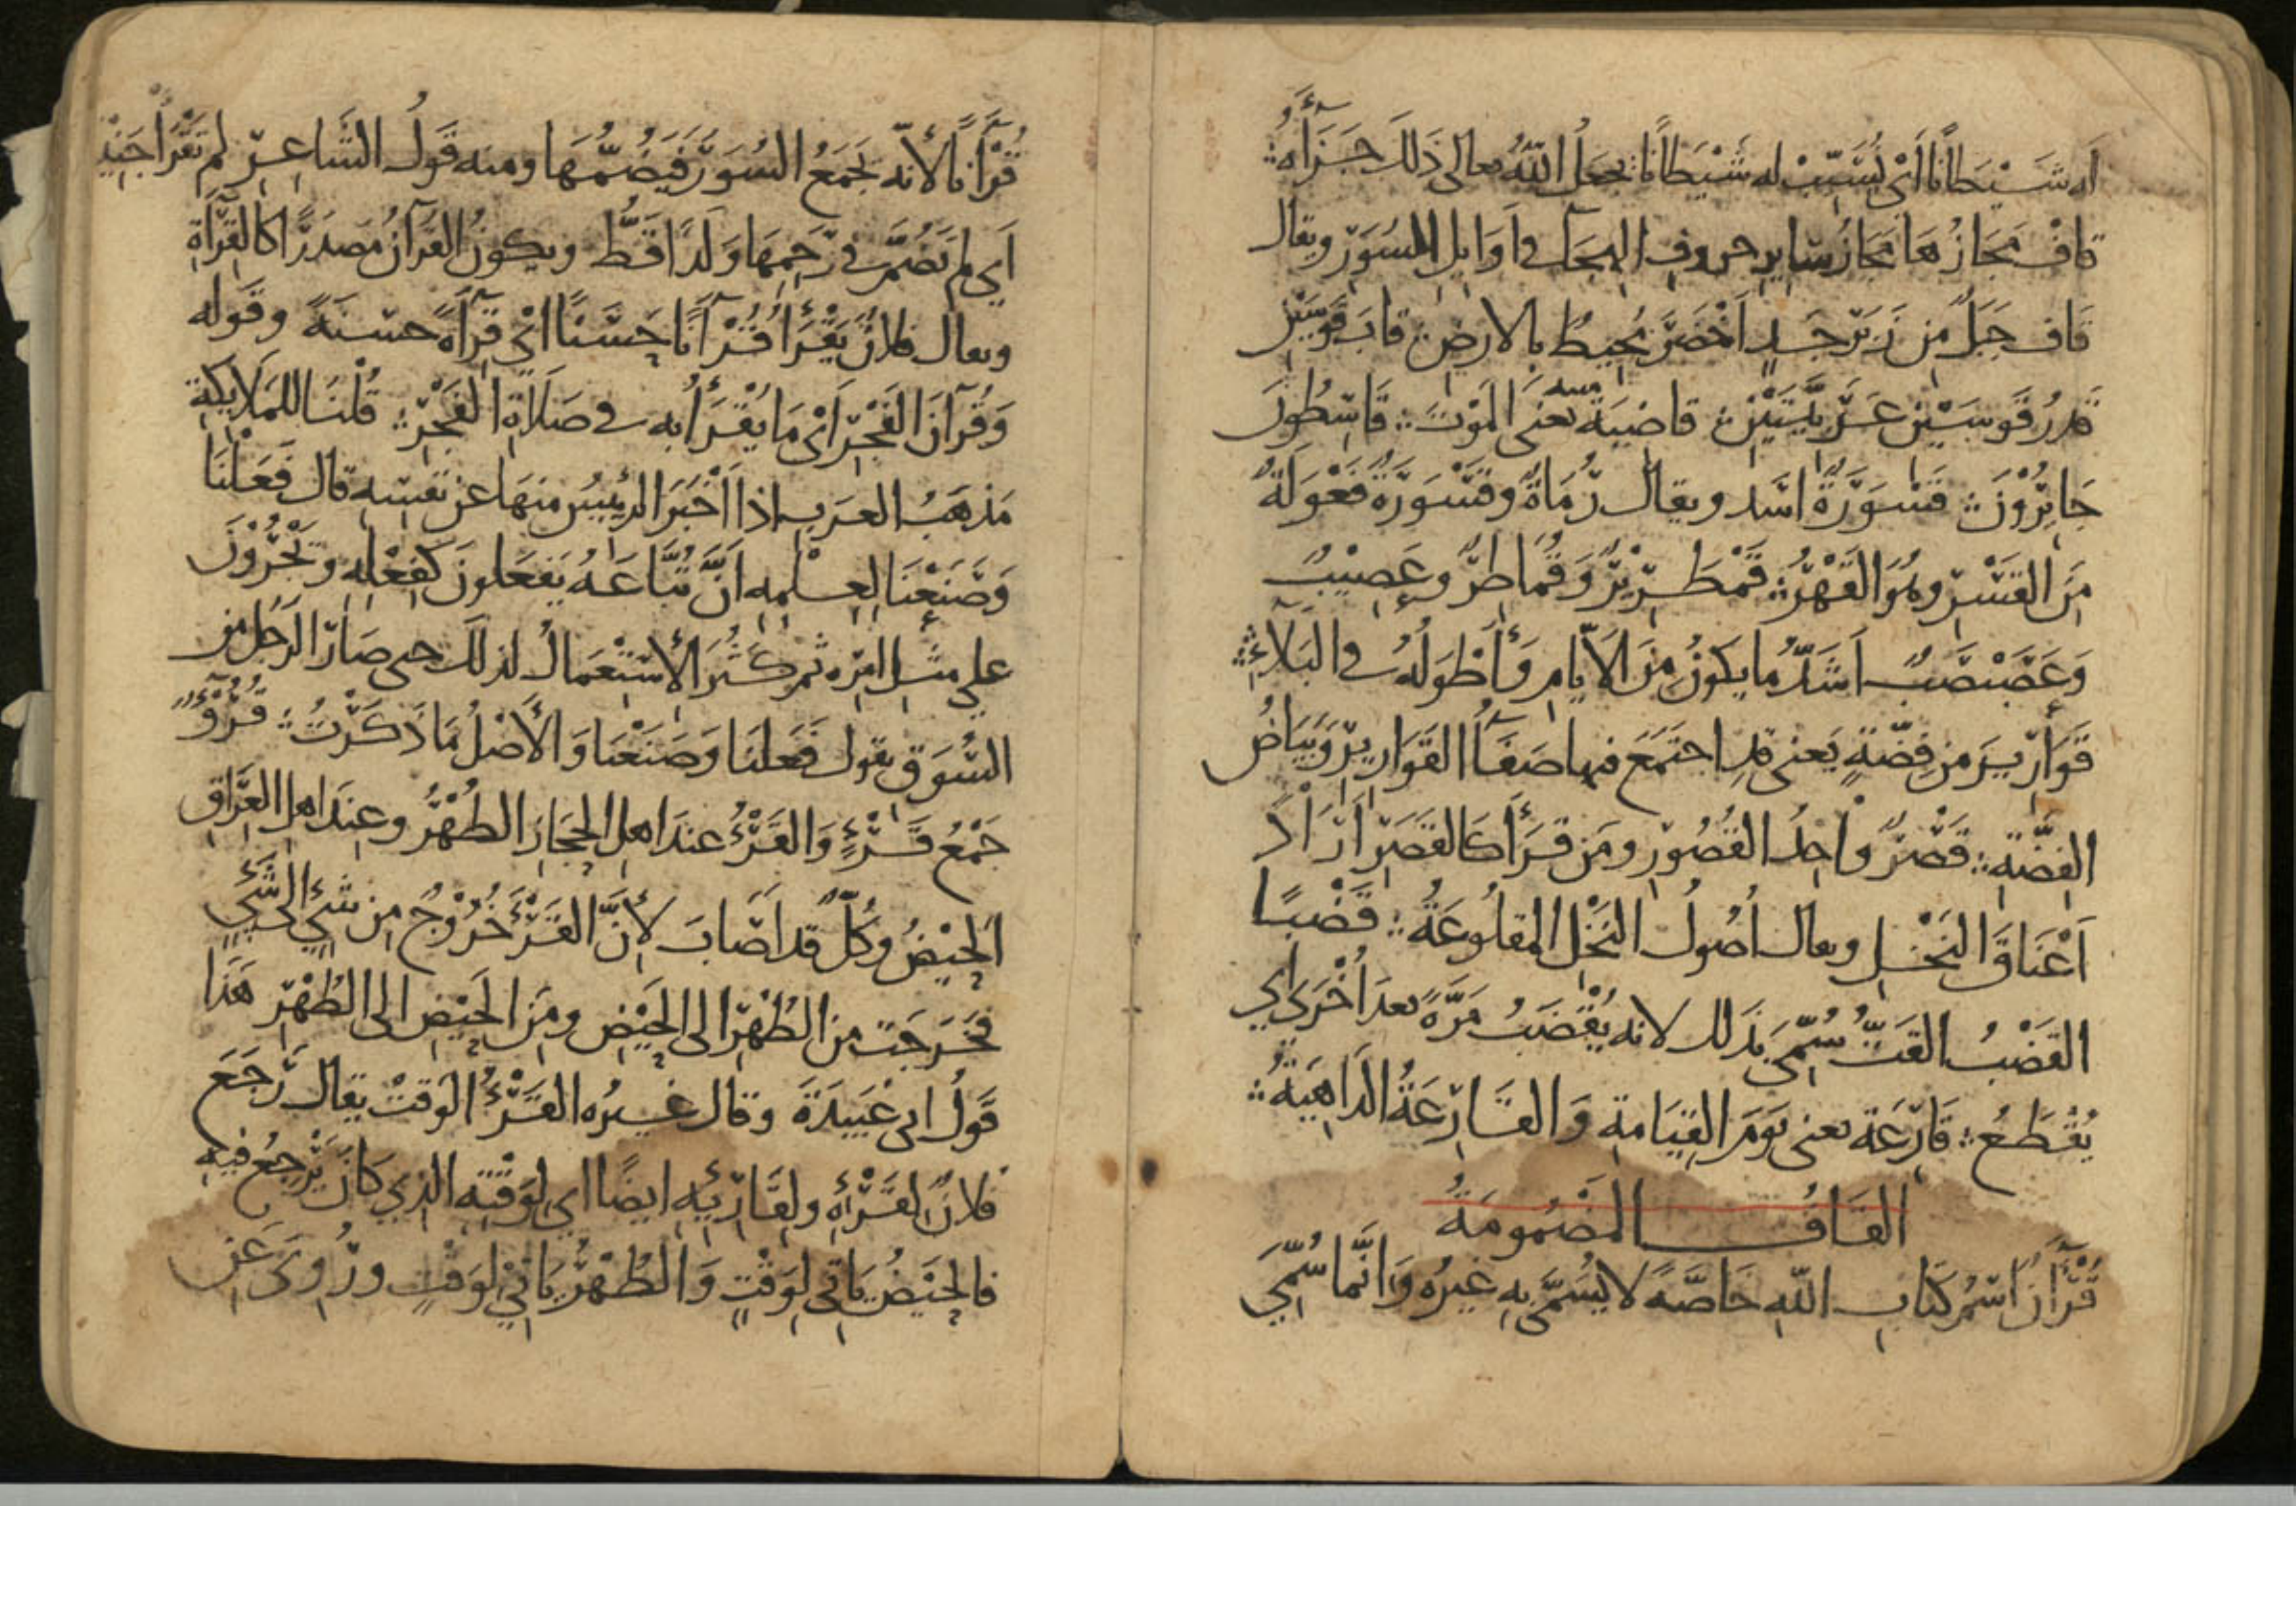 له شَيْطانًا أي نُسَبِّبْ له شَيْطانًا فجعل اللّهُ تعالى ذلكَ جَزَآءَهُ ∴
قافْ مَجَازُهَا مَجَازُ سَايِرِ حروفِ الهجَآء في أوَايلِ السُّوَرِ ويقال
قَاف جَبَلٌ مِن زَبَرجَدٍ أخْضَرَ مُحِيطٌ بالأرضِ ∴ قابَ قَوسَيْنِ
قَدرُ قَوسَيْنِ عَرَبِيَّتَيْنِ ∴ قاضِيَة منيه يعنى المَوْتَ ∴ قَاسِطُونَ
جَايِرُوْنَ ∴ قَسْوَرَةٌ أسَد ويقال رُمَاةٌ وقَسْوَرَةٌ فَعْوَلَةٌ
مِنَ القَسْرِ وهُوَ القَهْرُ ∴ قَمْطَرِيْرٌ وَقُمَاطِرٌ وعَصِيْبٌ
وَعَصَبْصَبٌ أشَدُّ ما يكونُ مِنَ الأيّامِ وَأَطْوَلُهُ في البَلَآءِ ∴
قَوَارِيرَ مِن فِضَّةٍ يَعنى قدِ اجتمَعَ فيها صَفَآءُ القَوَارِيرِ وَبَيَاضُ
الفِضَّةِ ∴ قَصْرٌ وَاحِدُ القُصُورِ ومَن قرَأَ كَالقَصَرِ أرَادَ
أعْنَاقَ النَخْلِ ويقال أصُولُ النَخْلِ المَقلُوعَةُ ∴ قَضْبًا
القَضْبُ القَتُّ سُمِّيَ بذَلك لانه يُقْضَبُ مَرَّةً بعدَ أُخْرَى اي
يُقْطَعُ ∴ قَارِعَة يعنى يَومَ القِيَامةِ وَالقَارِعَةُ الدَاهِيَةُ ∴
القَافُ المَضْمُومَةُ
قُرْآنُ اسْمُ كتابِ اللّهِ خاصَّةً لا يُسَمَّى بِهِ غيرُه وَإنَّما سُمِّيَ
قُرْآنًا لأنّه يَجمَعُ السُوَرَ فَيَضُمُّهَا ومنه قَولُ الشَاعِرِ لم تَقْرَأْ جَنِيْنًا
أي لم تَضُمَّ في رَحِمِهَا وَلَدًا قَطُّ ويكون القُرآنُ مصدَرًا كالقِرَآءَةِ
ويقال فلانٌ يَقْرَأُ قُرْآنًا حَسَنًا أيْ قِرَآءَةً حسنةً وقَوله
وَقُرآنَ الفَجْرِ أيْ مَا يُقْرَأُ به في صَلَاةِ الفَجْرِ ∴ قُلْنَا للمَلَايِكَةِ
مَذهَبُ العَرَبِ إذا أخْبَرَ الرئِيسُ منهَا عن نفسِهِ قال فَعَلْنَا
وَصَنَعْنَا لِعِلْمِهِ أنَّ تُبَّاعَهُ يَفعَلونَ كَفِعْلِهِ وَيَجْرُوْنَ
علي مثلِ امْرِه ثم كَثُرَ الأسْتِعْمَالُ لذلكَ حتى صَارَ الرَجُلُ من
السُّوَقِ يقول فَعَلنَا وَصَنَعْنَا وَالأَصْلُ مَا ذَكَرْتُ ∴ قُرُوْءٌ
جَمْعُ قَرْءٍ وَالقَرْءُ عندَ اهلِ الحِجَازِ الطُهْرُ وعِندَ اهلِ العِرَاقِ
الحَيْضُ وكلٌّ قد أصَابَ لأنَّ القَرْءَ خُرُوْجٌ مِن شَيْءٍ الى شَيْءٍ
فخَرَجَت مِن الطُهْرِ الى الحَيْضِ ومِنَ الحَيْضِ الى الطُهْرِ هَذا
قَولُ ابي عُبَيدَةَ وقال غيرُه القَرْءُ الوَقتْ يقال رَجَعَ
فلانٌ لقَرْءِهِ ولِقَارِئِهِ ايضًا اي لِوَقْتِهِ الذي كانَ يَرْجِعُ فِيهِ
فالحَيْضُ يَاتِي لِوَقْتٍ وَالطُهْرُ يَاتِيْ لِوَقتٍ ورُوِىَ عَن